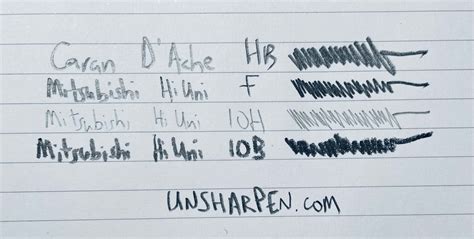 Caran D'Ache HB
Mitsubishi Hi Uni F
Mitsubishi Hi Uni 10H
Mitsubishi Hi Uni 10B
UNSHARPEN.COM